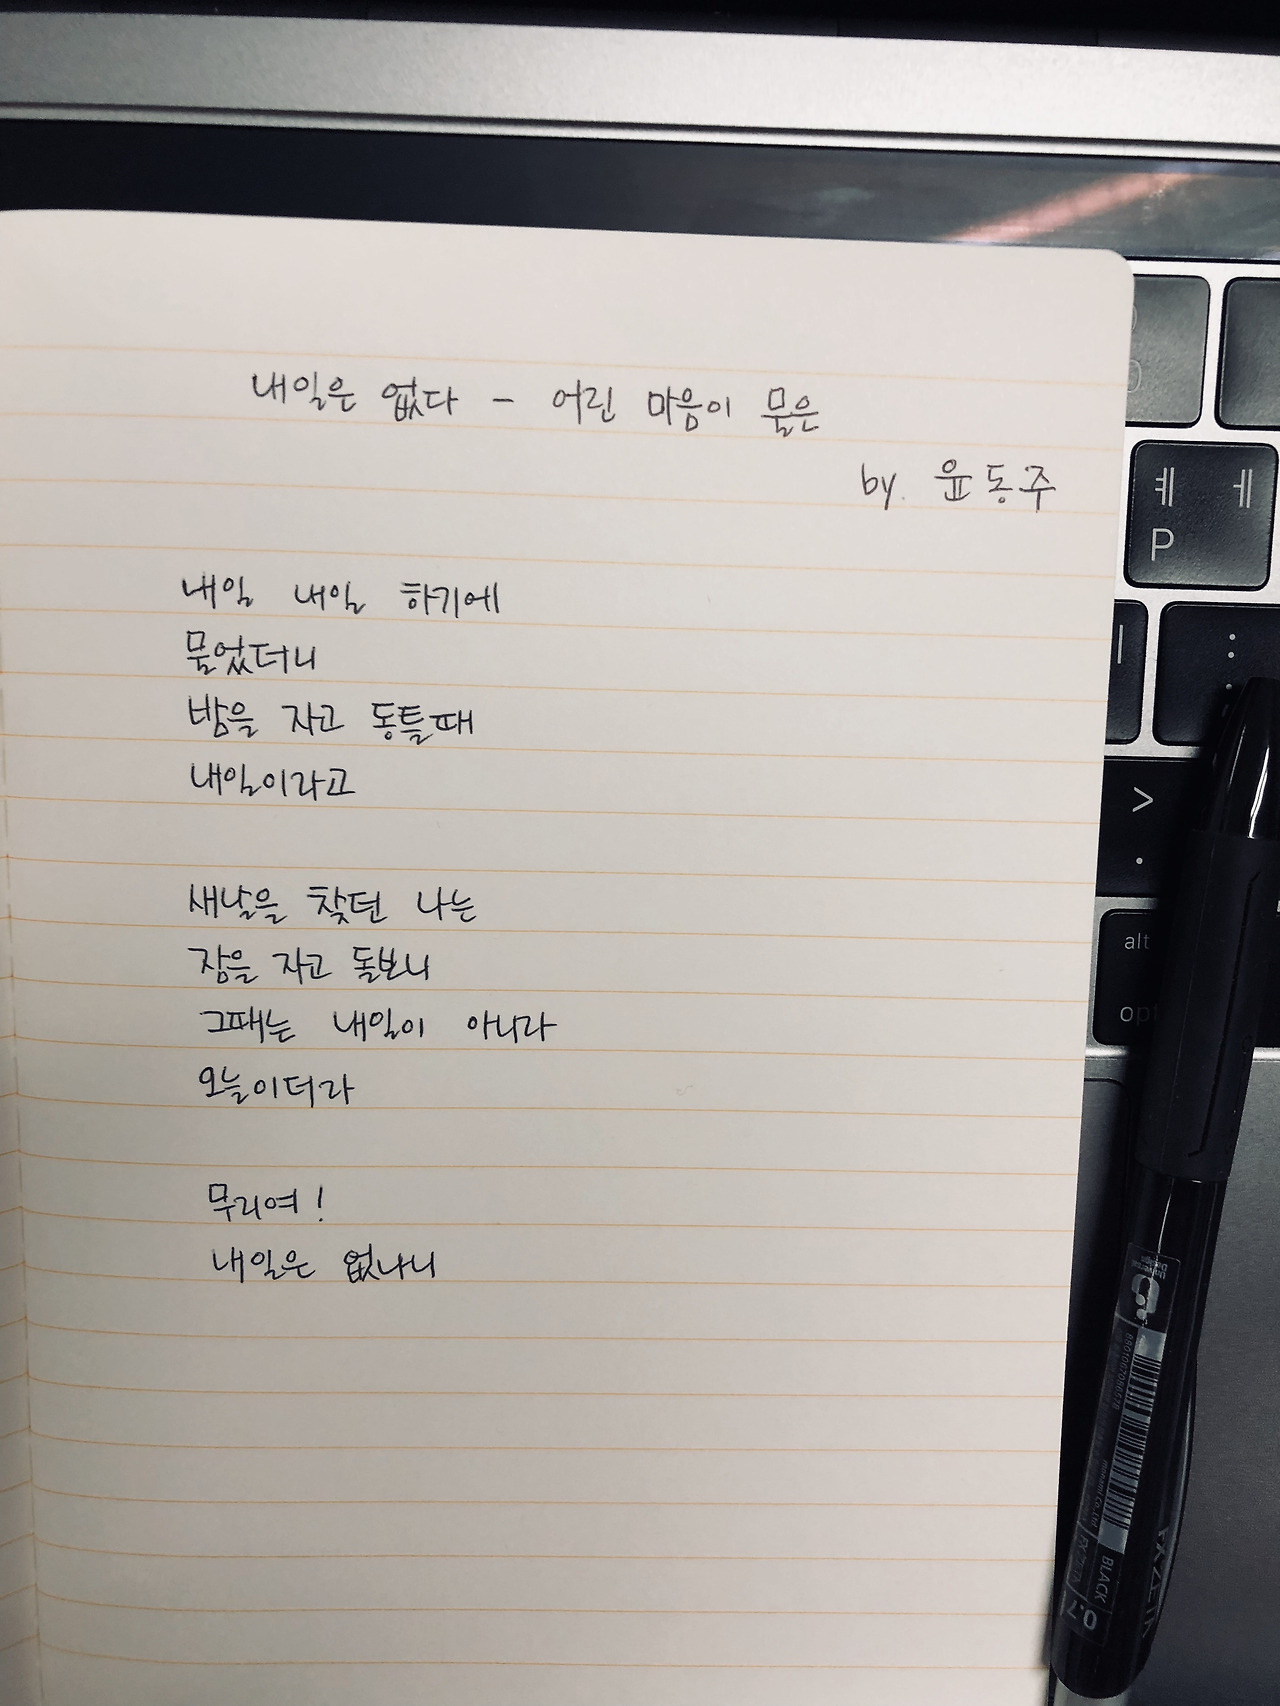 내일은 없다 - 어린 마음이 물은
by. 윤동주
내일 내일 하기에
물었더니
밤을 자고 동틀때
내일이라고
새날을 찾던 나는
잠을 자고 돌보니
그때는 내일이 아니라
오늘이더라
무리여!
내일은 없나니
ㅖ ㅔ
P
:
>
.
alt
Universal
Design
8801067086578
monami Co., Ltd
BLACK
0.7
FX ZETA